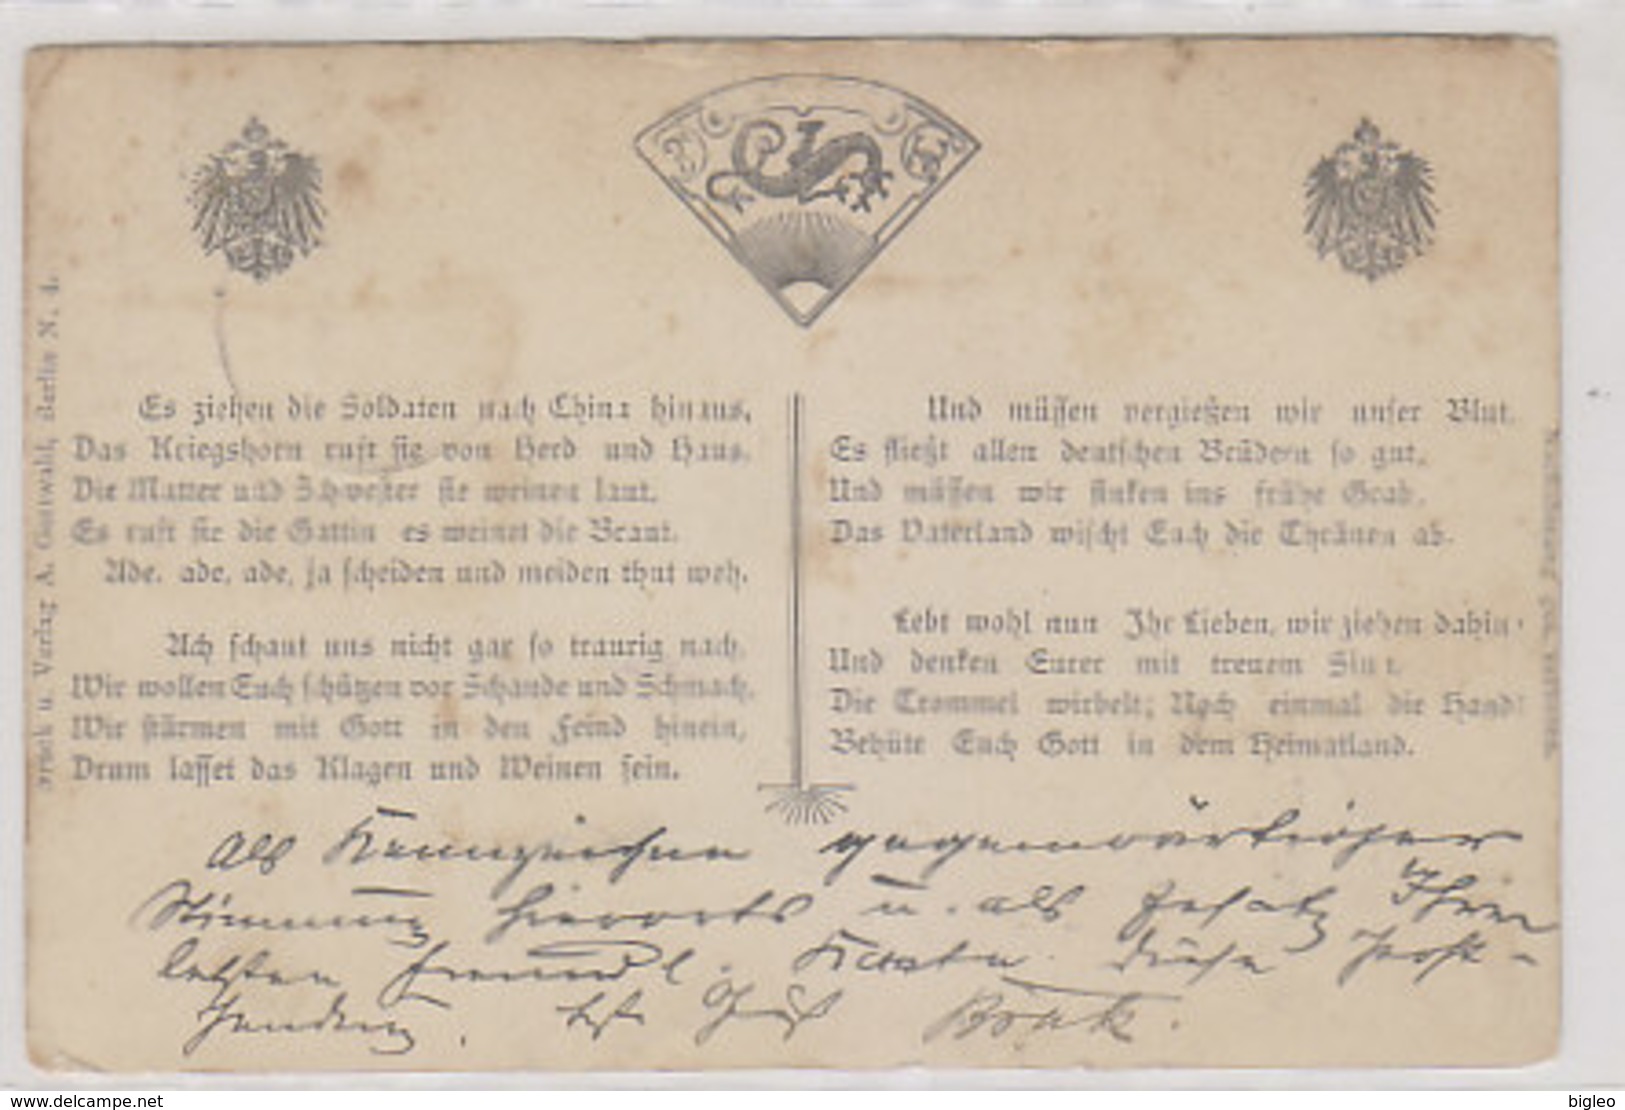 Es ziehen die Soldaten nach China hinaus,
Das Kriegshorn ruft sie von Herd und Haus.
Die Mutter und Schwester sie weinen laut,
Es ruft sie die Gattin es weinet die Braut.
Ade, ade, ade, ja scheiden und meiden thut weh.
Ach schaut uns nicht gar so traurig nach,
Wir wollen Euch schützen vor Schande und Schmach,
Wir stürmen mit Gott in den Feind hinein,
Drum lasset das Klagen und Weinen sein.
Und müssen vergießen wir unser Blut,
Es fließt allen deutschen Brüdern so gut,
Und müssen wir sinken ins frühe Grab,
Das Vaterland wischt Euch die Thränen ab.
Lebt wohl nun Ihr Lieben, wir ziehen dahin
Und denken Eurer mit treuem Sinn.
Die Trommel wirbelt; Noch einmal die Hand!
Behüte Euch Gott in dem Heimatland.
Druck u. Verlag A. Gottwald, Berlin N. 4.
Nachahmung verboten.
Als Kennzeichen gegenwärtiger
Stimmung hierorts u. als Ersatz Ihrer
letzten freundl. Karte diese Post-
sendung. Gruß
delcampe.net
bigleo